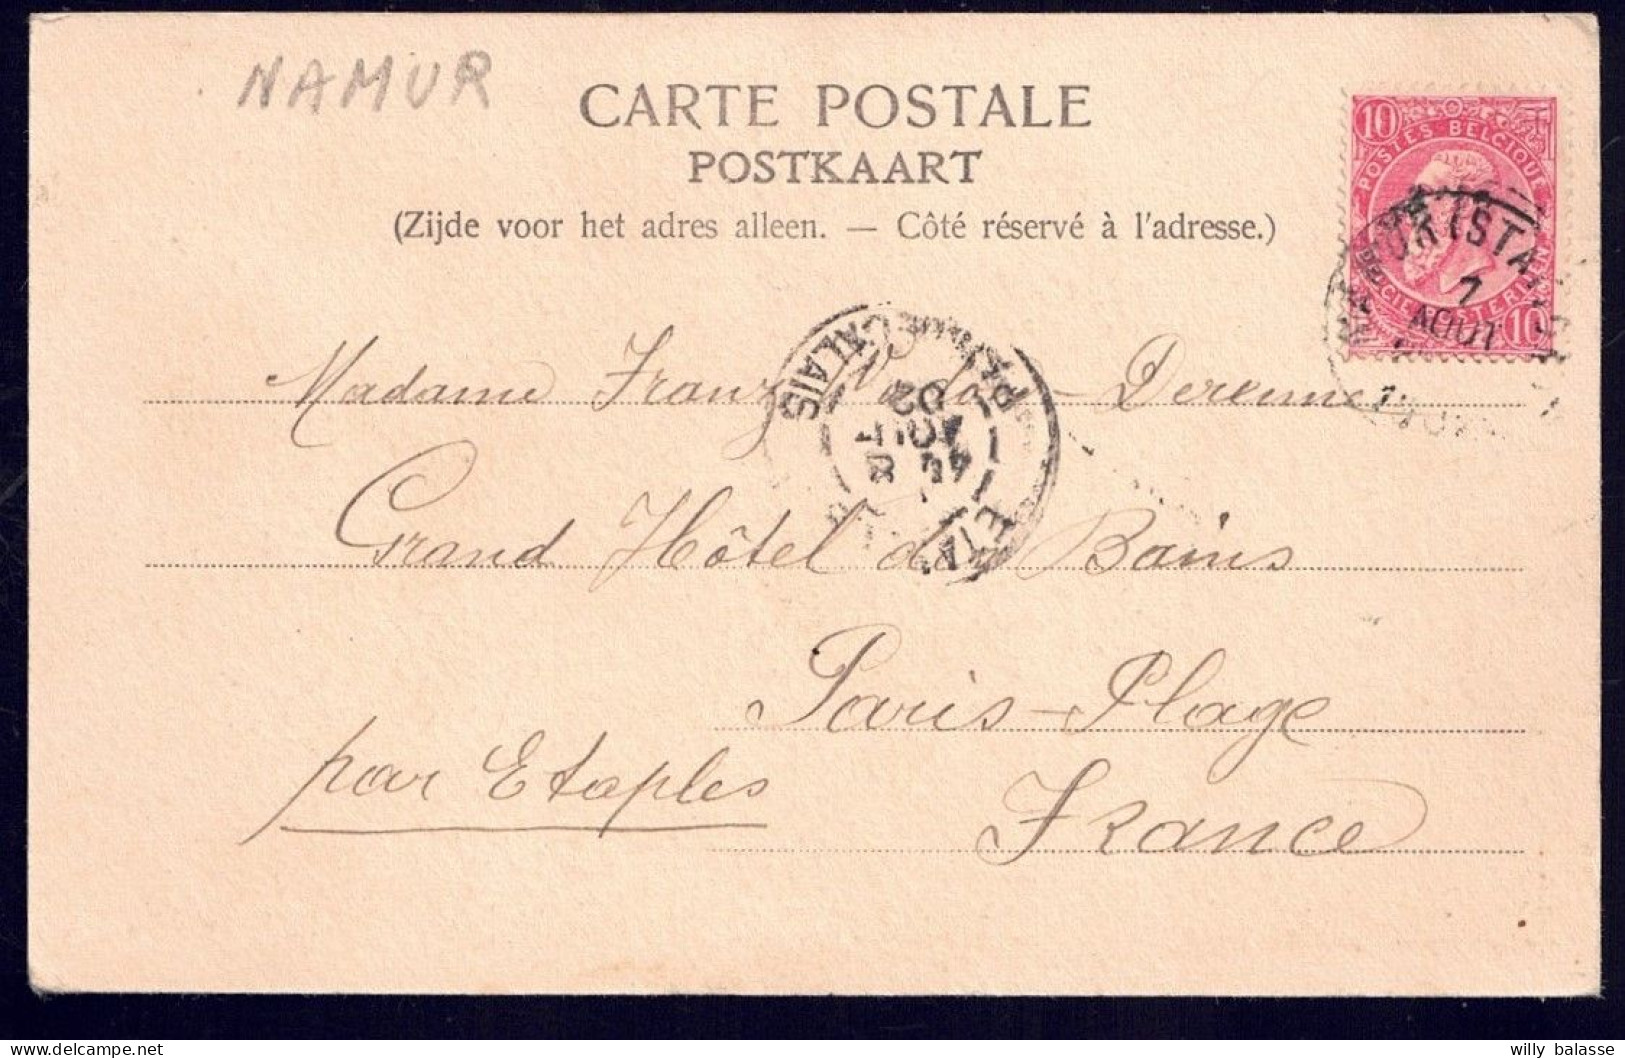 NAMUR
CARTE POSTALE
POSTKAART
(Zijde voor het adres alleen. — Côté réservé à l'adresse.)
10
POSTES BELGIQUE
7
AOUT
10
PAS DE CALAIS
8
AOUT
02
Madame Franz - Derenne
Grand Hôtel des Bains
Paris-Plage
par Etaples
France
willy balasse